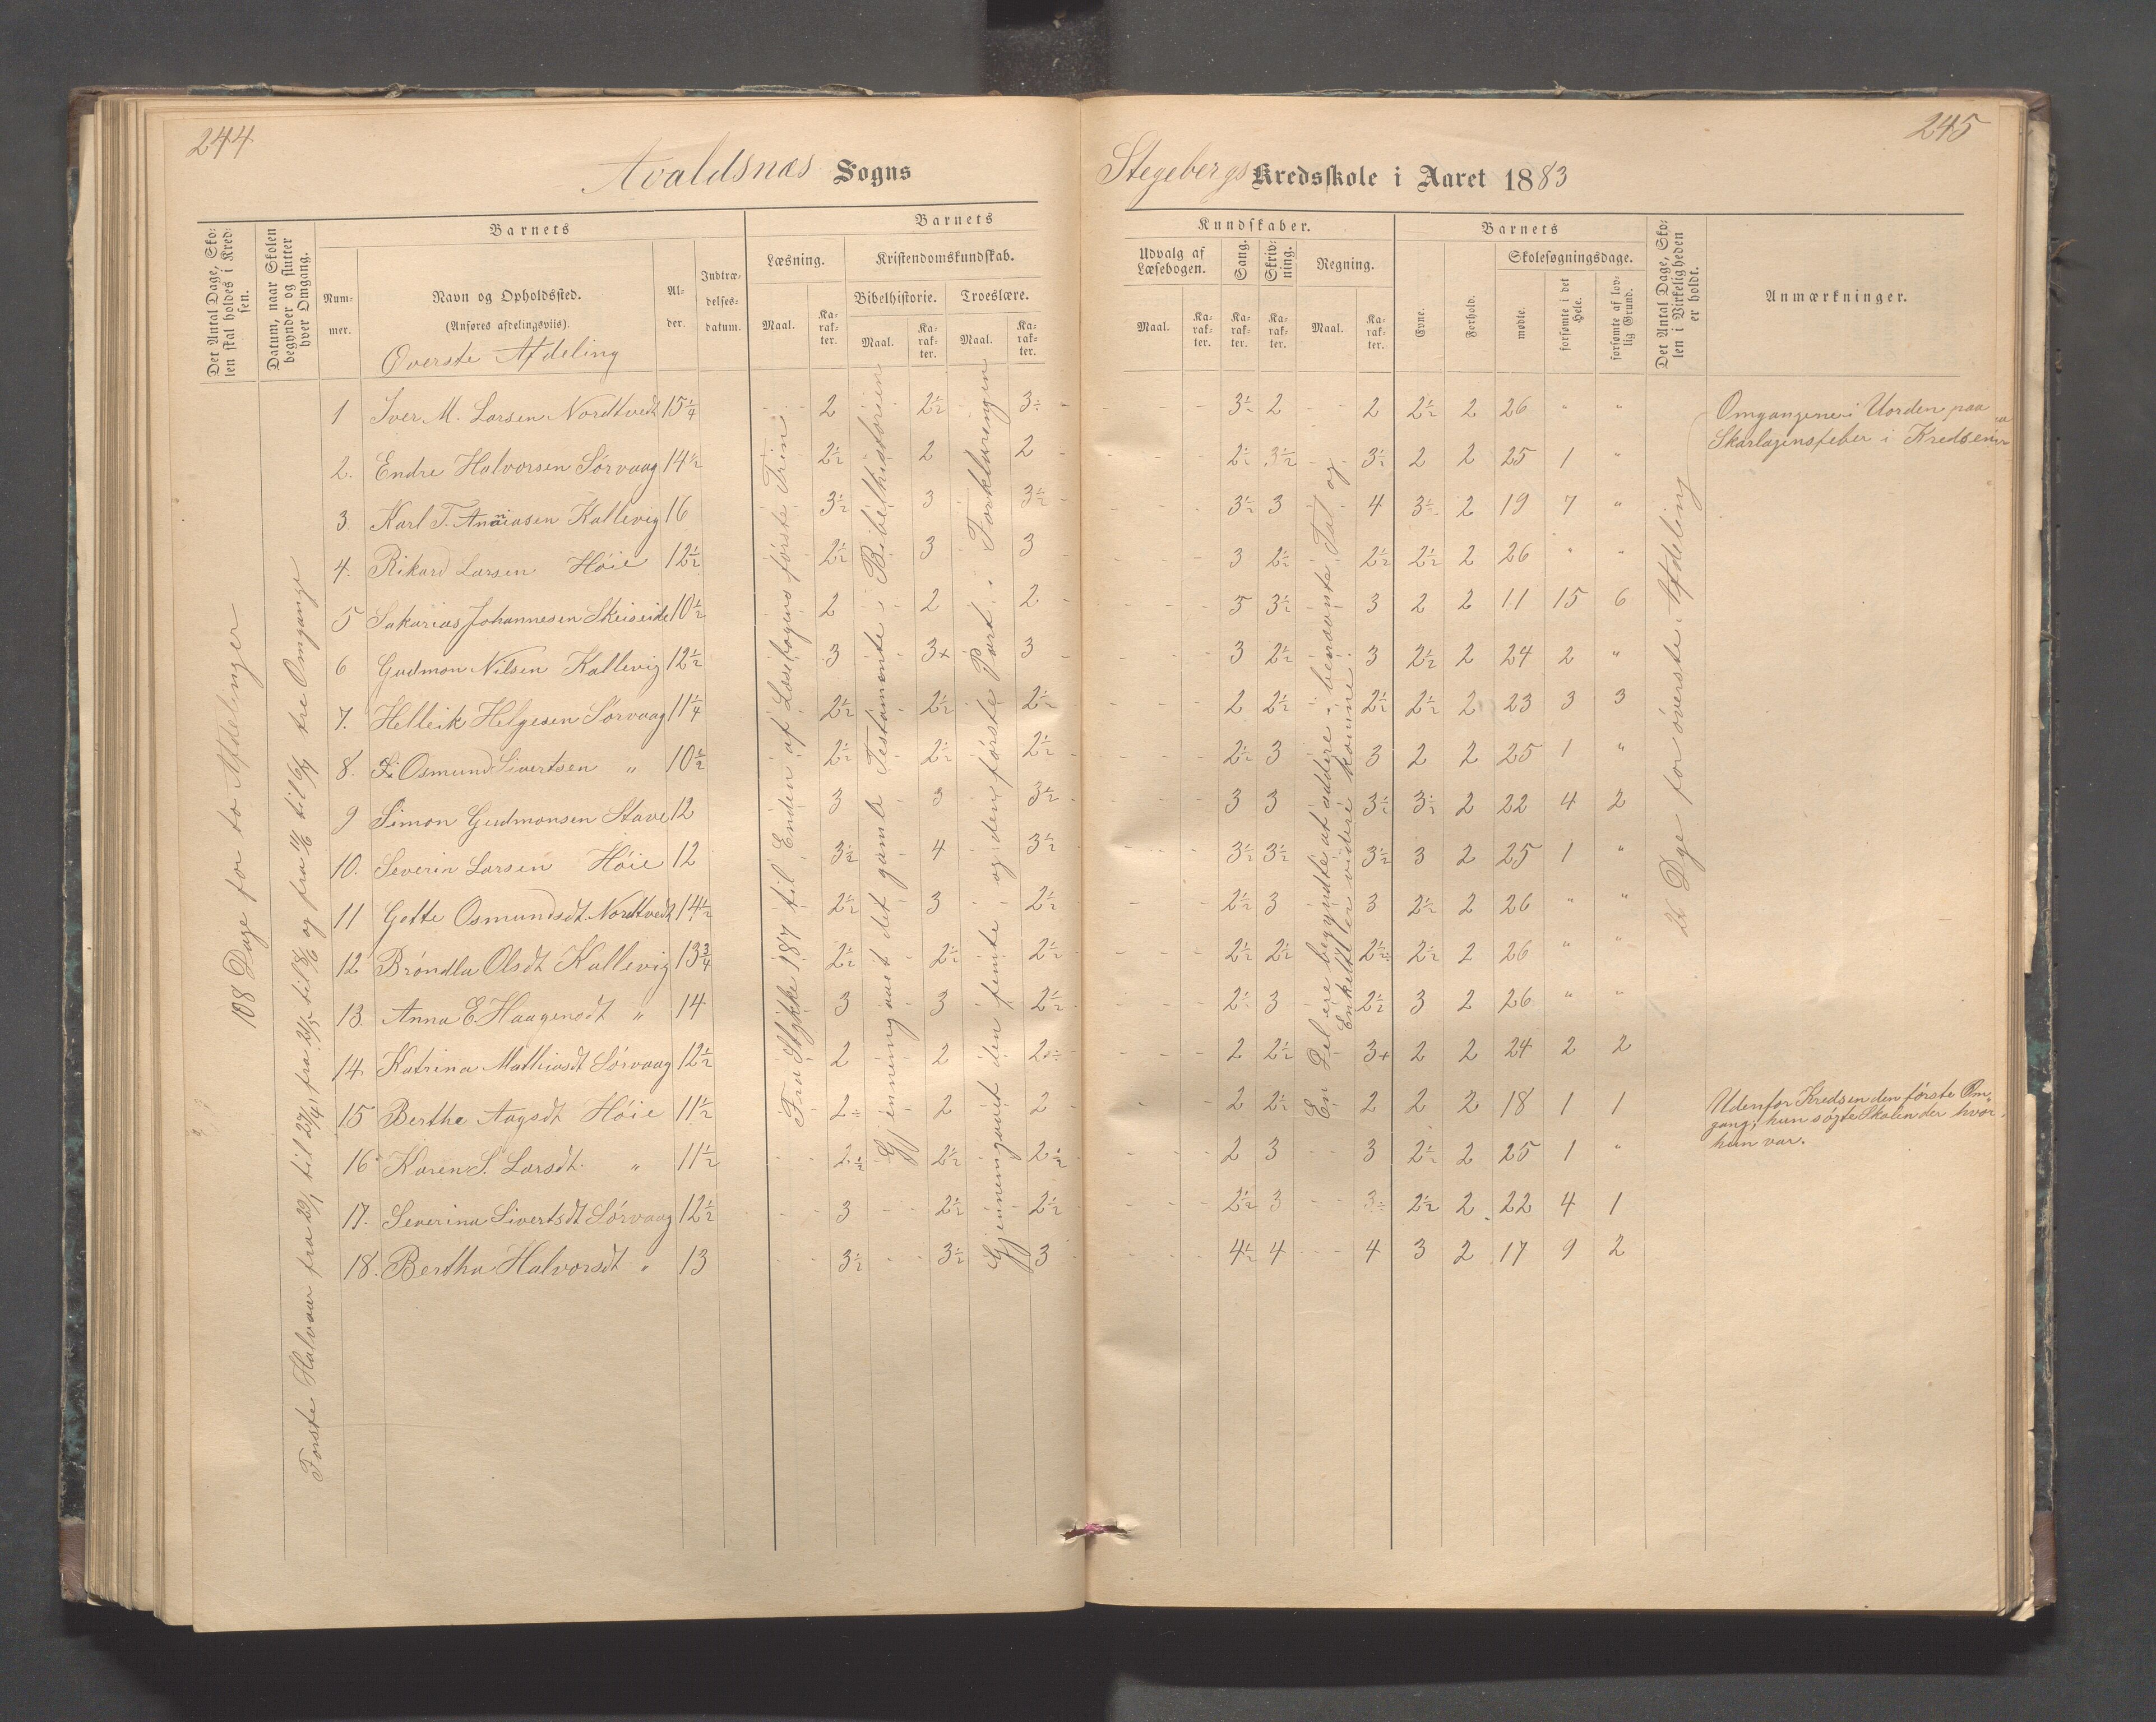 244
Avaldsnæs Sogns
Det Antal Dage, Sko-
len skal holdes i Kred-
sen.
Datum, naar Skolen
begynder og slutter
hver Omgang.
Num-
mer.
Barnets
Navn og Opholdssted.
(Anføres afdelingsviis).
Øverste Afdeling
Al-
der.
Indtræ-
delses-
datum.
Barnets
Læsning.
Maal.
Ka-
rak-
ter.
Kristendomskundskab.
Bibelhistorie.
Maal.
Ka-
rak-
ter.
Troeslære.
Maal.
Ka-
rak-
ter.
108 Dage for to Afdelinger
Første Halvaar fra 29/1 til 27/4, fra 21/5 til 8/6 og fra 11/6 til 6/7 tre Omgange
Fra Stykke 187 til Enden af Læsebogens første Trin
Gjennemgaaet det gamle Testamente i Bibelhistorien
Gjennemgaaet den femte og den første Part i Forklaringen
1 Iver M. Larsen Nordtvedt 15 1/4 2 2 1/2 3÷
2. Endre Halvorsen Sørvaag 14 1/2 2 1/2 2 2
3. Karl T. Ananiasen Kallevig 16 3 1/2 3 3 1/2
4. Rikard Larsen Høie 12 1/2 2 1/2 3 3
5 Sakarias Johannesen Skeiseide 10 1/2 2 2 2
6 Gudmon Nilsen Kallevig 12 1/2 3 3+ 3
7. Helleik Helgesen Sørvaag 11 1/4 2 1/2 2 1/2 2 1/2
8. Osmund Sivertsen " 10 1/2 2 1/2 2 1/2 2 1/2
9 Simon Gudmonsen Stave 12 3 3 3 1/2
10. Severin Larsen Høie 12 3 1/2 4 3 1/2
11 Gette Osmundsdt Nordtvedt 14 1/2 2 1/2 3 2 1/2
12 Brøndla Olsdt Kallevig 13 3/4 2 1/2 2 1/2 2 1/2
13. Anna E. Haagensdt " 14 3 3 2 1/2
14 Katrina Mathiasdt Sørvaag 12 1/2 2 2 2÷
15 Berthe Aagsdt Høie 11 1/2 2÷ 2 2
16 Karen S. Larsdt. " 11 1/2 2 1/2 2 1/2 2 1/2
17. Severina Sivertsdt Sørvaag 12 1/2 3 2 1/2 2 1/2
18. Bertha Halvorsdt " 13 3 1/2 3 1/2 3
245
Stegebergs Kredsskole i Aaret 1883
Kundskaber.
Udvalg af
Læsebogen.
Maal.
Ka-
rak-
ter.
Sang.
Ka-
rak-
ter.
Skriv-
ning.
Ka-
rak-
ter.
Regning.
Maal.
Ka-
rak-
ter.
Barnets
Evne.
Forhold.
Skolesøgningsdage.
mødte.
forsømte i det
Hele.
forsømte af lov-
lig Grund.
Det Antal Dage, Sko-
len i Virkeligheden
er holdt.
Anmærkninger.
En Del ere begyndte at addere i benævnte Tal og
Enkelte ere videre komne.
26 Dge for øverste Afdeling
3 1/2 2 2 2 1/2 2 26 " "
Omgangene i Uorden paa
Skarlagensfeber i Kredsen
2 1/2 3 1/2 3 1/2 2 2 25 1 "
3 1/2 3 4 3÷ 2 19 7 "
3 2 1/2 2 1/2 2 1/2 2 26 " "
3 3 1/2 3 2 2 11 15 6
3 2 1/2 3 2 1/2 2 24 2 "
2 2 1/2 2 1/2 2 1/2 2 23 3 3
2 1/2 3 3 2 2 25 1 "
3 3 3 1/2 3 1/2 2 22 4 2
3 1/2 3 1/2 3 1/2 3 2 25 1 "
2 1/2 3 3 2 1/2 2 26 " "
2 1/2 2 1/2 2 1/2 2 1/2 2 26 " "
2 1/2 3 2 1/2 3 2 26 " "
2 2 1/2 3+ 2 2 24 2 2
2 2 1/2 2 2 2 18 1 1
Udenfor Kredsen den første Om-
gang; hun søgte Skolen der hvor
hun var.
2 3 3 2 1/2 2 25 1 "
2 1/2 3 3÷ 2 1/2 2 22 4 1
4 1/2 4 4 3 2 17 9 2